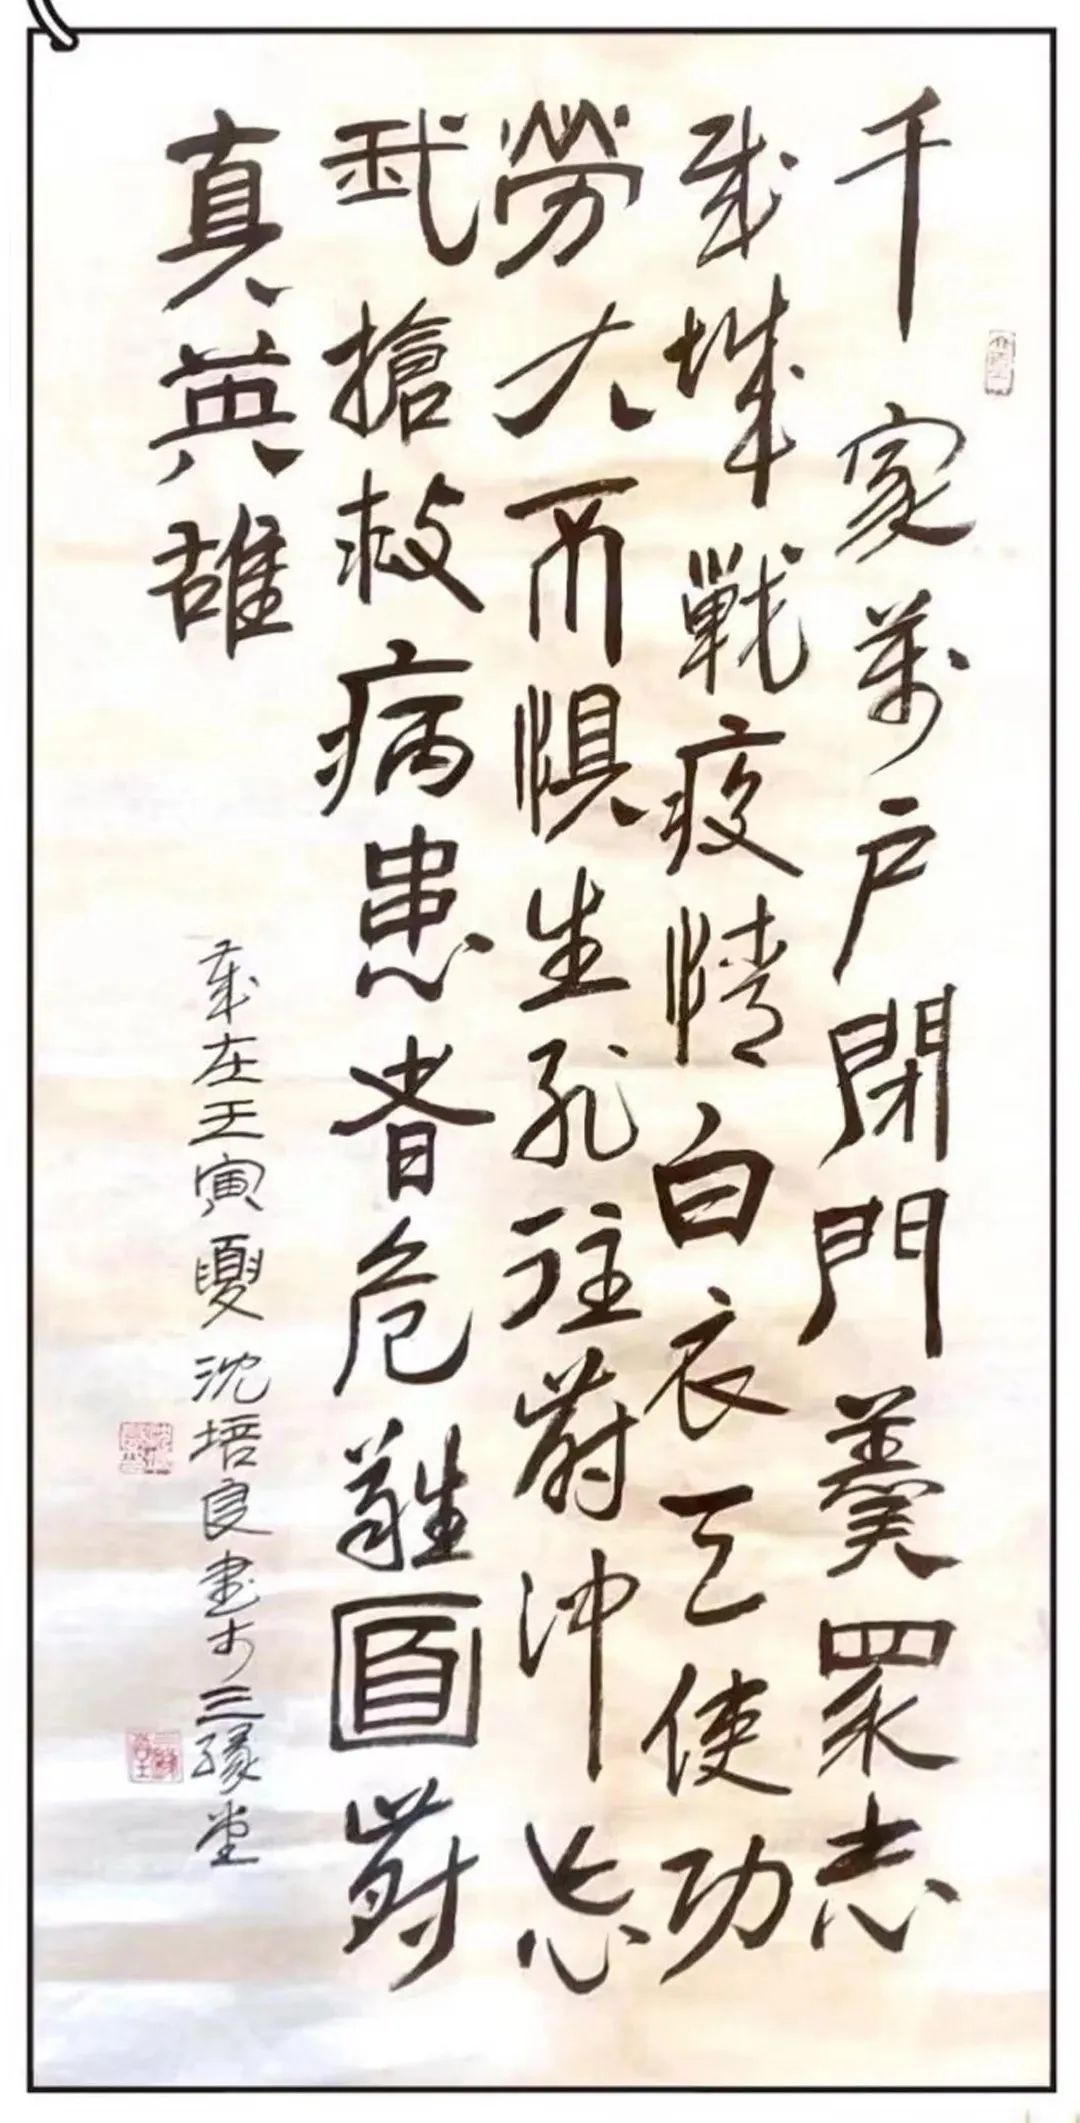 千家萬戶閉門羹眾志
成城戰疫情白衣天使功
勞大不惧生死往前沖忘
我搶救病患者危難面前
真英雄
歲在壬寅夏沈培良書於三緣堂